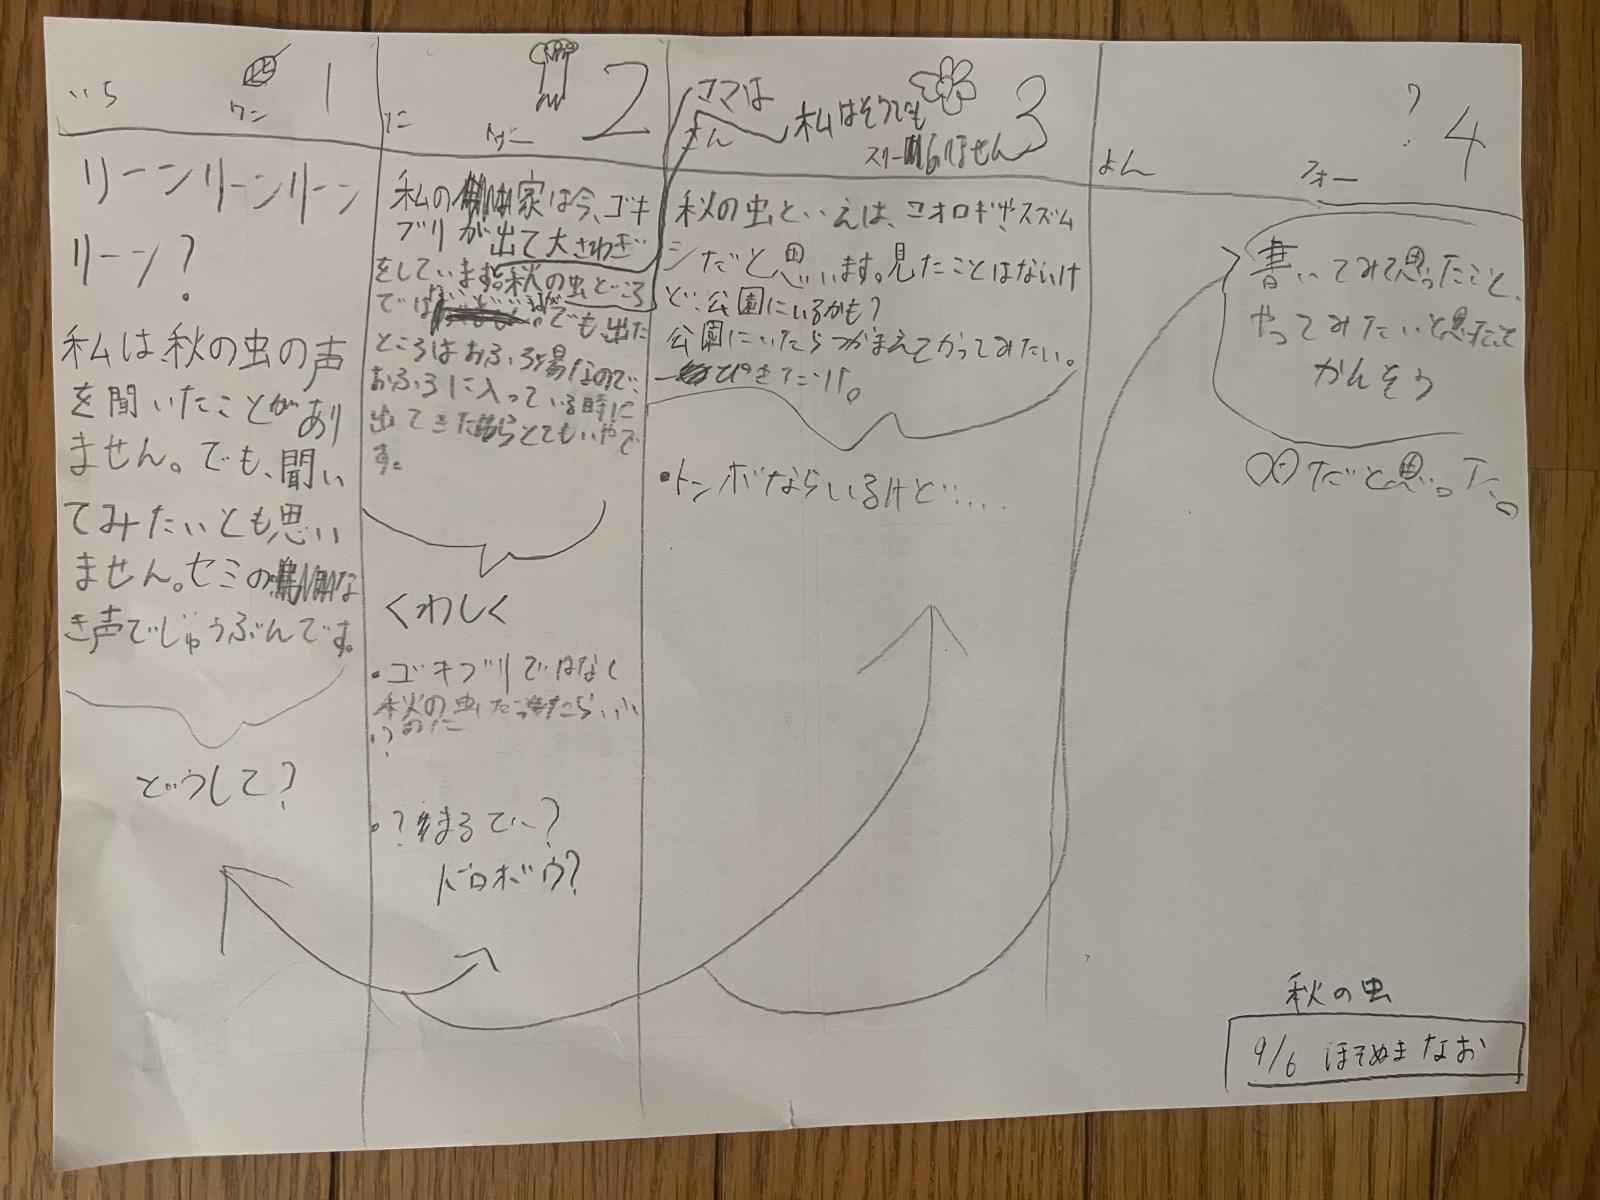 いち
ワン
1
リーンリーンリーン
リーン?
私は、秋の虫の声
を聞いたことがあり
ません。でも、聞い
てみたいとも思い
ません。セミのな
き声でじゅうぶんです。
どうして?
に
トゥー
2
私の家は今、ゴキ
ブリが出て大さわぎ
をしています。秋の虫どころ
では
でも、出た
ところはおふろ場なので、
おふろに入っている時に
出てきたらとてもいやで
す。
くわしく
・ゴキブリではなく
秋の虫だったらいい
のに
?
・?まるで〜?
ドロボウ?
ママは
私はそうでも
さん
スリー
ません
3
秋の虫といえば、コオロギや、スズム
シだと思います。見たことはないけ
ど、公園にいるかも?
公園にいたらつかまえてかってみたい。
ぴきだけ。
・トンボならいるけど・・・・
?
4
よん
フォー
書いてみて思ったこと、
やってみたいと思ったこと
かんそう
○○だと思った。
秋の虫
9/6 ほそぬま なお